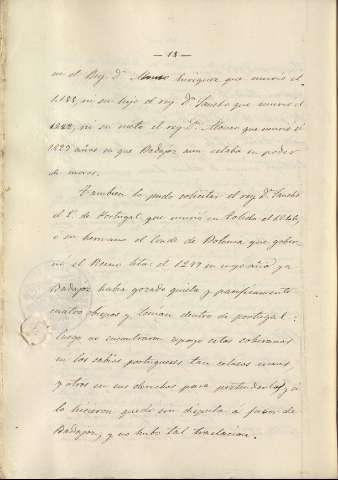 — 18 —
ni el Rey D.n Alonso Enriquez que murió el
1.188, ni su hijo el rey D.n Sancho que murió el
1212, ni su nieto el rey D.n Alonso que murió el
1223 años en que Badajoz aun estaba en poder
de moros.
Tambien lo pudo solicitar el rey D.n Sancho
el 2.º de Portugal, que murió en Toledo el 1246,
ó su hermano el Conde de Bolonia que gober-
nó el Reino hta. el 1279 en cuyo año ya
Badajoz habia gozado quieta y pacificamente
cuatro obispos y tenian dentro de portugal:
luego no encontraron apoyo estos soberanos
en los sabios portugueses tan celosos unos
y otros en sus derechos para pretenderlo, y si
lo hicieron quedó sin disputa á favor de
Badajoz, y no hubo tal traslacion.